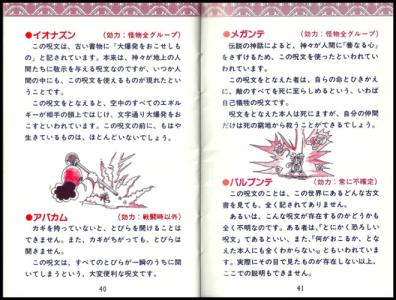 ●イオナズン (効力:怪物全グループ)
この呪文は、古い書物に「大爆発をおこせしも
の」と記されています。本来は、神々が地上の人
間たちに啓示を与える呪文なのですが、いつか人
間の中にも、この呪文を使えるものが現れたとい
うことです。
この呪文をとなえると、空中のすべてのエネル
ギーが相手の頭上ではじけ、文字通り大爆発をお
こすといわれています。この呪文の前に、もはや
生きているものは、ほとんどいないでしょう。
●アバカム (効力:戦闘時以外)
カギを持っていないと、とびらを開けることは
できません。また、カギがちがっても、とびらは
開きません。
この呪文は、すべてのとびらが一瞬のうちに開
いてしまうという、大変便利な呪文です。
40
●メガンテ (効力:怪物全グループ)
伝説の神話によると、神々が人間に「善なる心」
をさずけるため、この呪文を使ったといわれてい
ます。
この呪文をとなえた者は、自らの命とひきかえ
に、敵のすべてを死に至らしめるという、いわば
自己犠牲の呪文です。
呪文をとなえた本人は死にますが、自分の仲間
だけは死の窮地から救うことができるでしょう。
●パルプンテ (効力:常に不確定)
この呪文のことは、この世界にあるどんな古文
書を見ても、全く記されてありません。
あるいは、こんな呪文が存在するのかどうかも
全く不明なのです。ある者は、「とにかく恐ろしい
呪文」であるといい、また、「何がおこるか、とな
えた本人にも全くわからない」ともいわれていま
す。実際にその目で見たものが存在しない以上、
ここでの説明もできません。
41